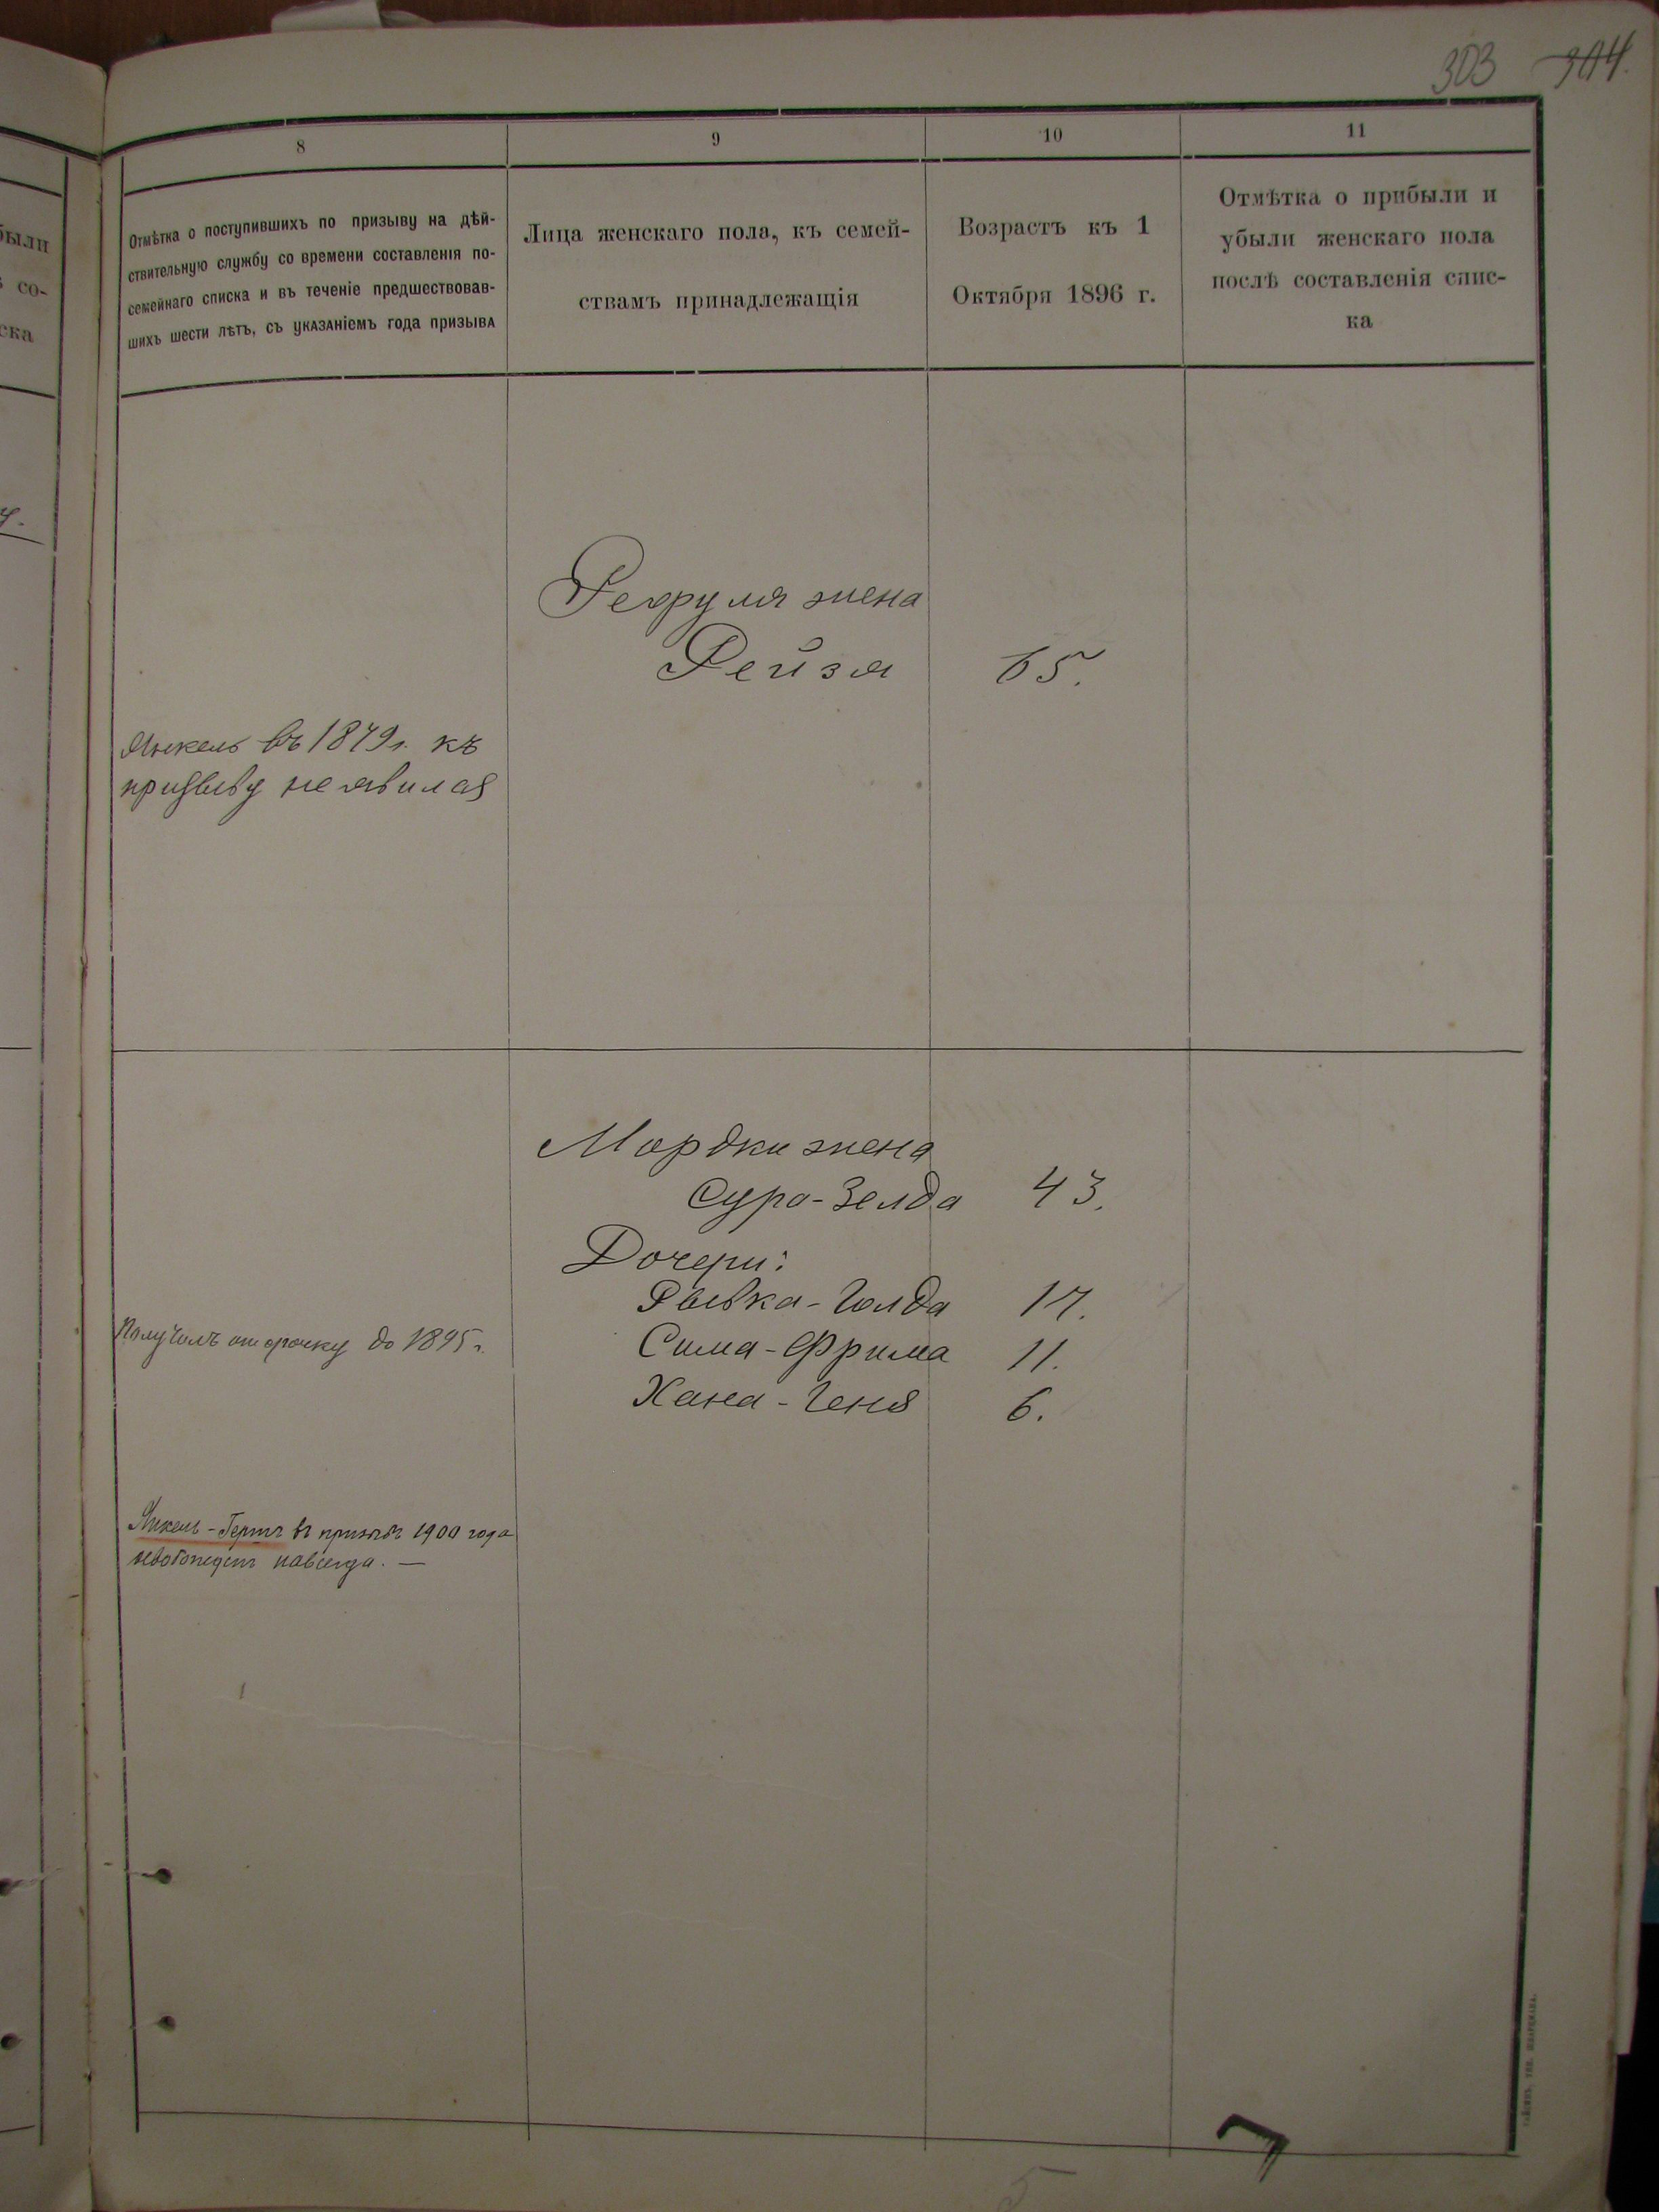 303 304.
8
9
10
11
Отмѣтка о поступившихъ по призыву на дѣй-
ствительную службу со времени составленія по-
семейнаго списка и въ теченіе предшествовав-
шихъ шести лѣтъ, съ указаніемъ года призыва
Лица женскаго пола, къ семей-
ствамъ принадлежащія
Возрастъ къ 1
Октября 1896 г.
Отмѣтка о прибыли и
убыли женскаго пола
послѣ составленія спис-
ка
были
со-
ска
жена
Рейзя 65.
Янкель въ 1879 г. къ
призыву не явился
Мордки жена
Сура-Зелда 43.
Дочери:
Рывка-Голда 17.
Сима-Фрима 11.
Хана-Геня 6.
Получилъ отсрочку до 1895 г.
Янкель-Гершъ въ призывъ 1900 года
освобожденъ навсегда. —